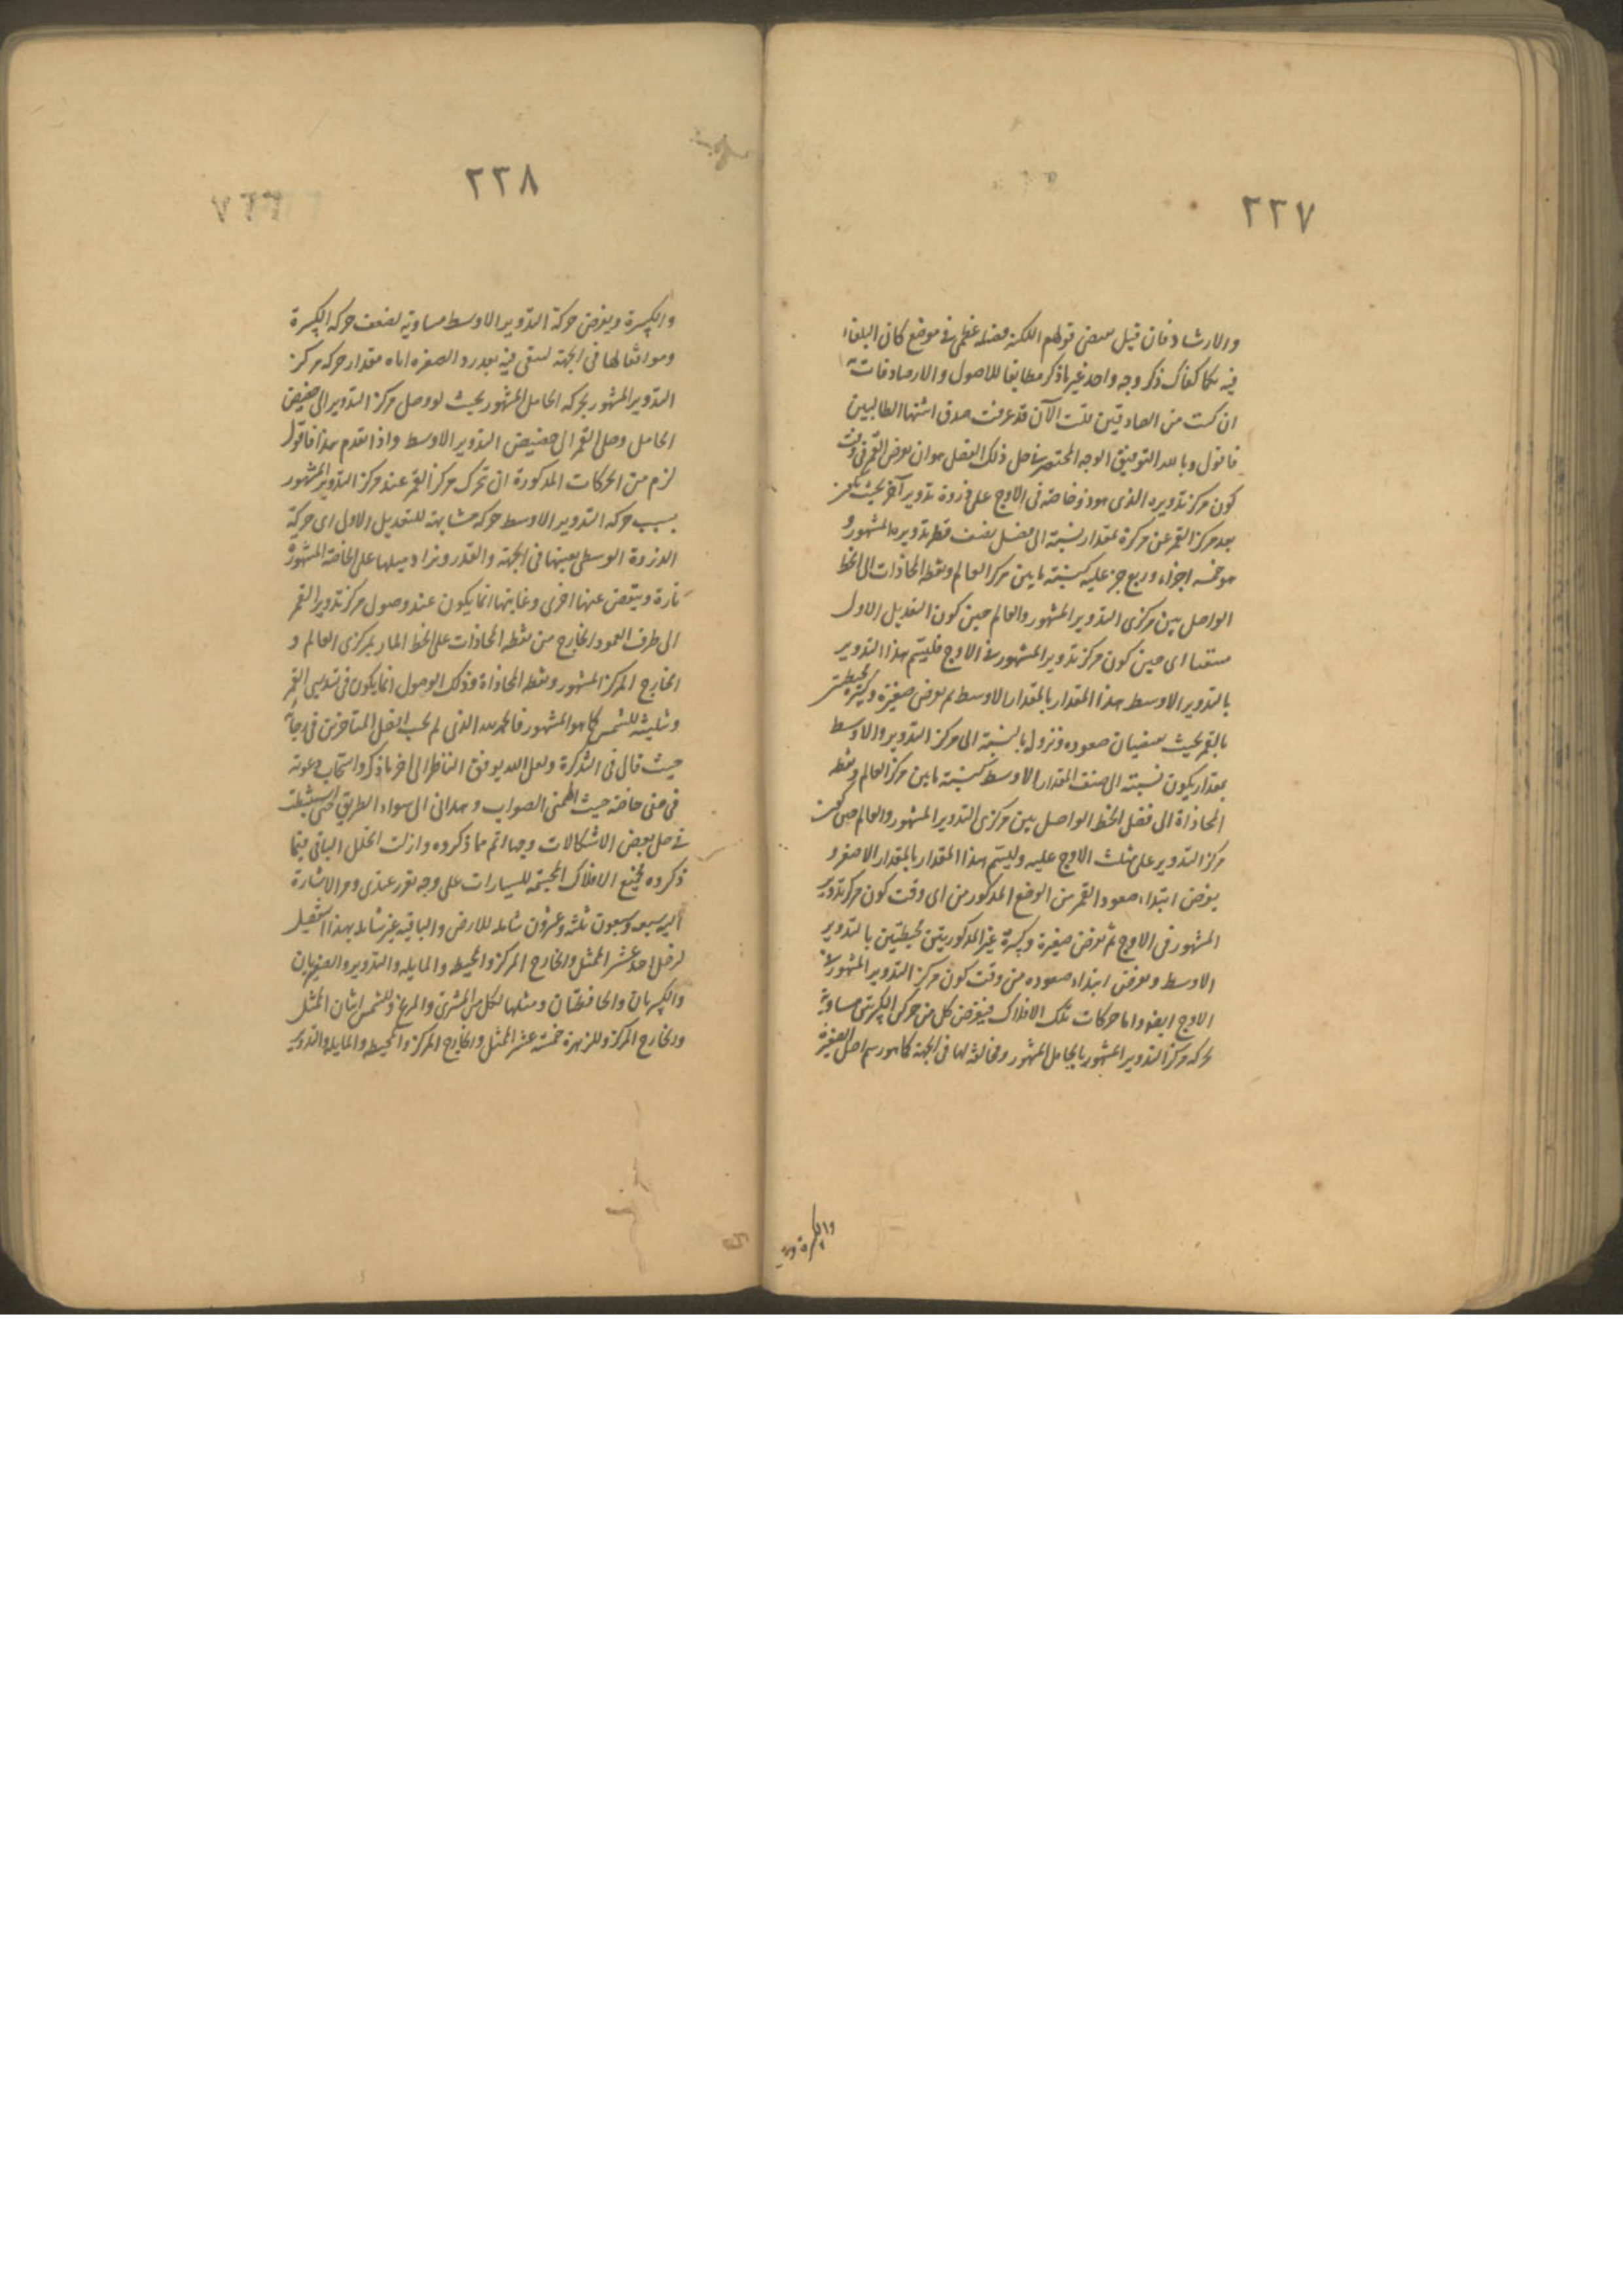 ٢٣٧
والارشاد فان قيل بعض قولهم اللكنة فضله عظمى فى موضع كان البلغاء
فيه بكما كفاك ذكر وجه واحد غير ما ذكر مطابقا للاصول والارصاد فات به
ان كنت من الصادقين قلت الآن قد عرفت صدق اشتها الطالبين
فاقول وبالله التوفيق الوجه المختصر فى حل ذلك العضل هو ان يفرض القمر فى وقت
كون مركز تدويره الذى هو ذو خاصته فى الاوج على ذروة تدوير آخر بحيث يكون
بعد مركز القمر عن مركزه بمقدار نسبته الى فضل نصف قطر تدويره المشهور و
هو خمسه اجزاء وربع جز عليه كنسبته ما بين مركز العالم ونقطه المحاذات الى الخط
الواصل بين مركزى التدوير المشهور والعالم حين كون التعديل الاول
منتفيا اى حين كون مركز تدوير المشهور فى الاوج فليسم هذا التدوير
بالتدوير الاوسط هذا المقدار بالمقدار الاوسط ثم يفرض صغيرة وكبيرة محيطتين
بالقمر بحيث يقتضيان صعوده ونزوله بالنسبة الى مركز التدوير والاوسط
بمقدار يكون نسبته الى نصف المقدار الاوسط كنسبته ما بين مركز العالم ونقطه
المحاذاة الى فضل الخط الواصل بين مركزى التدوير المشهور والعالم حين كون
مركز التدوير على مثلث الاوج عليه وليسم هذا المقدار بالمقدار الاصغر و
يفرض ابتداء صعود القمر من الوضع المذكور من اى وقت كون مركز تدويره
المشهور فى الاوج ثم يفرض صغيرة وكبيرة غير المذكوريتين محيطتين بالتدوير
الاوسط ويفرض ابتداء صعوده من وقت كون مركز التدوير المشهور فى
الاوج ايضا واما حركات تلك الافلاك فيفرض كل من حركتى الكبيرتين مساوية
لحركه مركز التدوير المشهور بالحامل المشهور ومخالفه لها فى الجهة كما هو رسم اصل الصغيرة
والكبيرة ويفرض
٢٣٨
والكبيرة ويفرض حركة التدوير الاوسط مساويه لضعف حركه الكبيرة
وموافقا لها فى الجهة ليبقى فيه بعد رد الصغيره اياه مقدار حركه مركز
التدوير المشهور بحركه الحامل المشهور بحيث لو وصل مركز التدوير الى حضيض
الحامل وصل القمر الى حضيض التدوير الاوسط واذا تقدم هذا فاقول
لزم من الحركات المذكورة ان تحرك مركز القمر عند مركز التدوير المشهور
بسبب حركه التدوير الاوسط حركه مشابهه للتعديل الاول اى حركة
الذروة الوسطى بعينها فى الجهة والقدر ويزاد ميلها على الخاصة المشهورة
تارة وينقص عنها اخرى وغايتها انما يكون عند وصول مركز تدوير القمر
الى طرف العمود الخارج من نقطه المحاذات على الخط المار بمركزى العالم و
الخارج المركز المشهور ونقطه المحاذاة وذلك الوصول انما يكون فى تسديس القمر
وتثليثه للشمس كما هو المشهور فالحمد لله الذى لم يحب افضل المتاخرين فى رجآئه
حيث قال فى التذكرة ولعل الله يوفق الناظر الى اخر ما ذكر واستجاب دعوته
فى حقى خاصة حيث الهمنى الصواب وهدانى الى سواء الطريق حتى استنبطت
فى حل بعض الاشكالات وجها اتم مما ذكروه وازلت الخلل الباقى فيما
ذكروه فجميع الافلاك المجسمه للسيارات على وجه تقرر عندى ومر الاشارة
اليه سبعه وسبعون ثلثه وعشرون شامله للارض والباقيه غير شامله بهذا التفصيل
لزحل احد عشر الممثل والخارج المركز والمحيط والمايله والتدوير والصغيرتان
والكبيرتان والحافظتان ومثلها لكل من المشترى والمريخ وللشمس اثنان الممثل
والخارج المركز وللزهرة خمسة عشر الممثل والخارج المركز والمحيط والمايله والتدوير